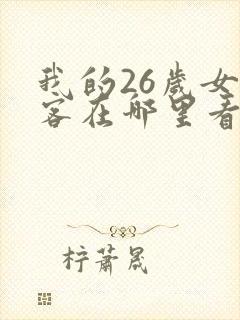 我的26岁女
客在哪里看
柠萧晟